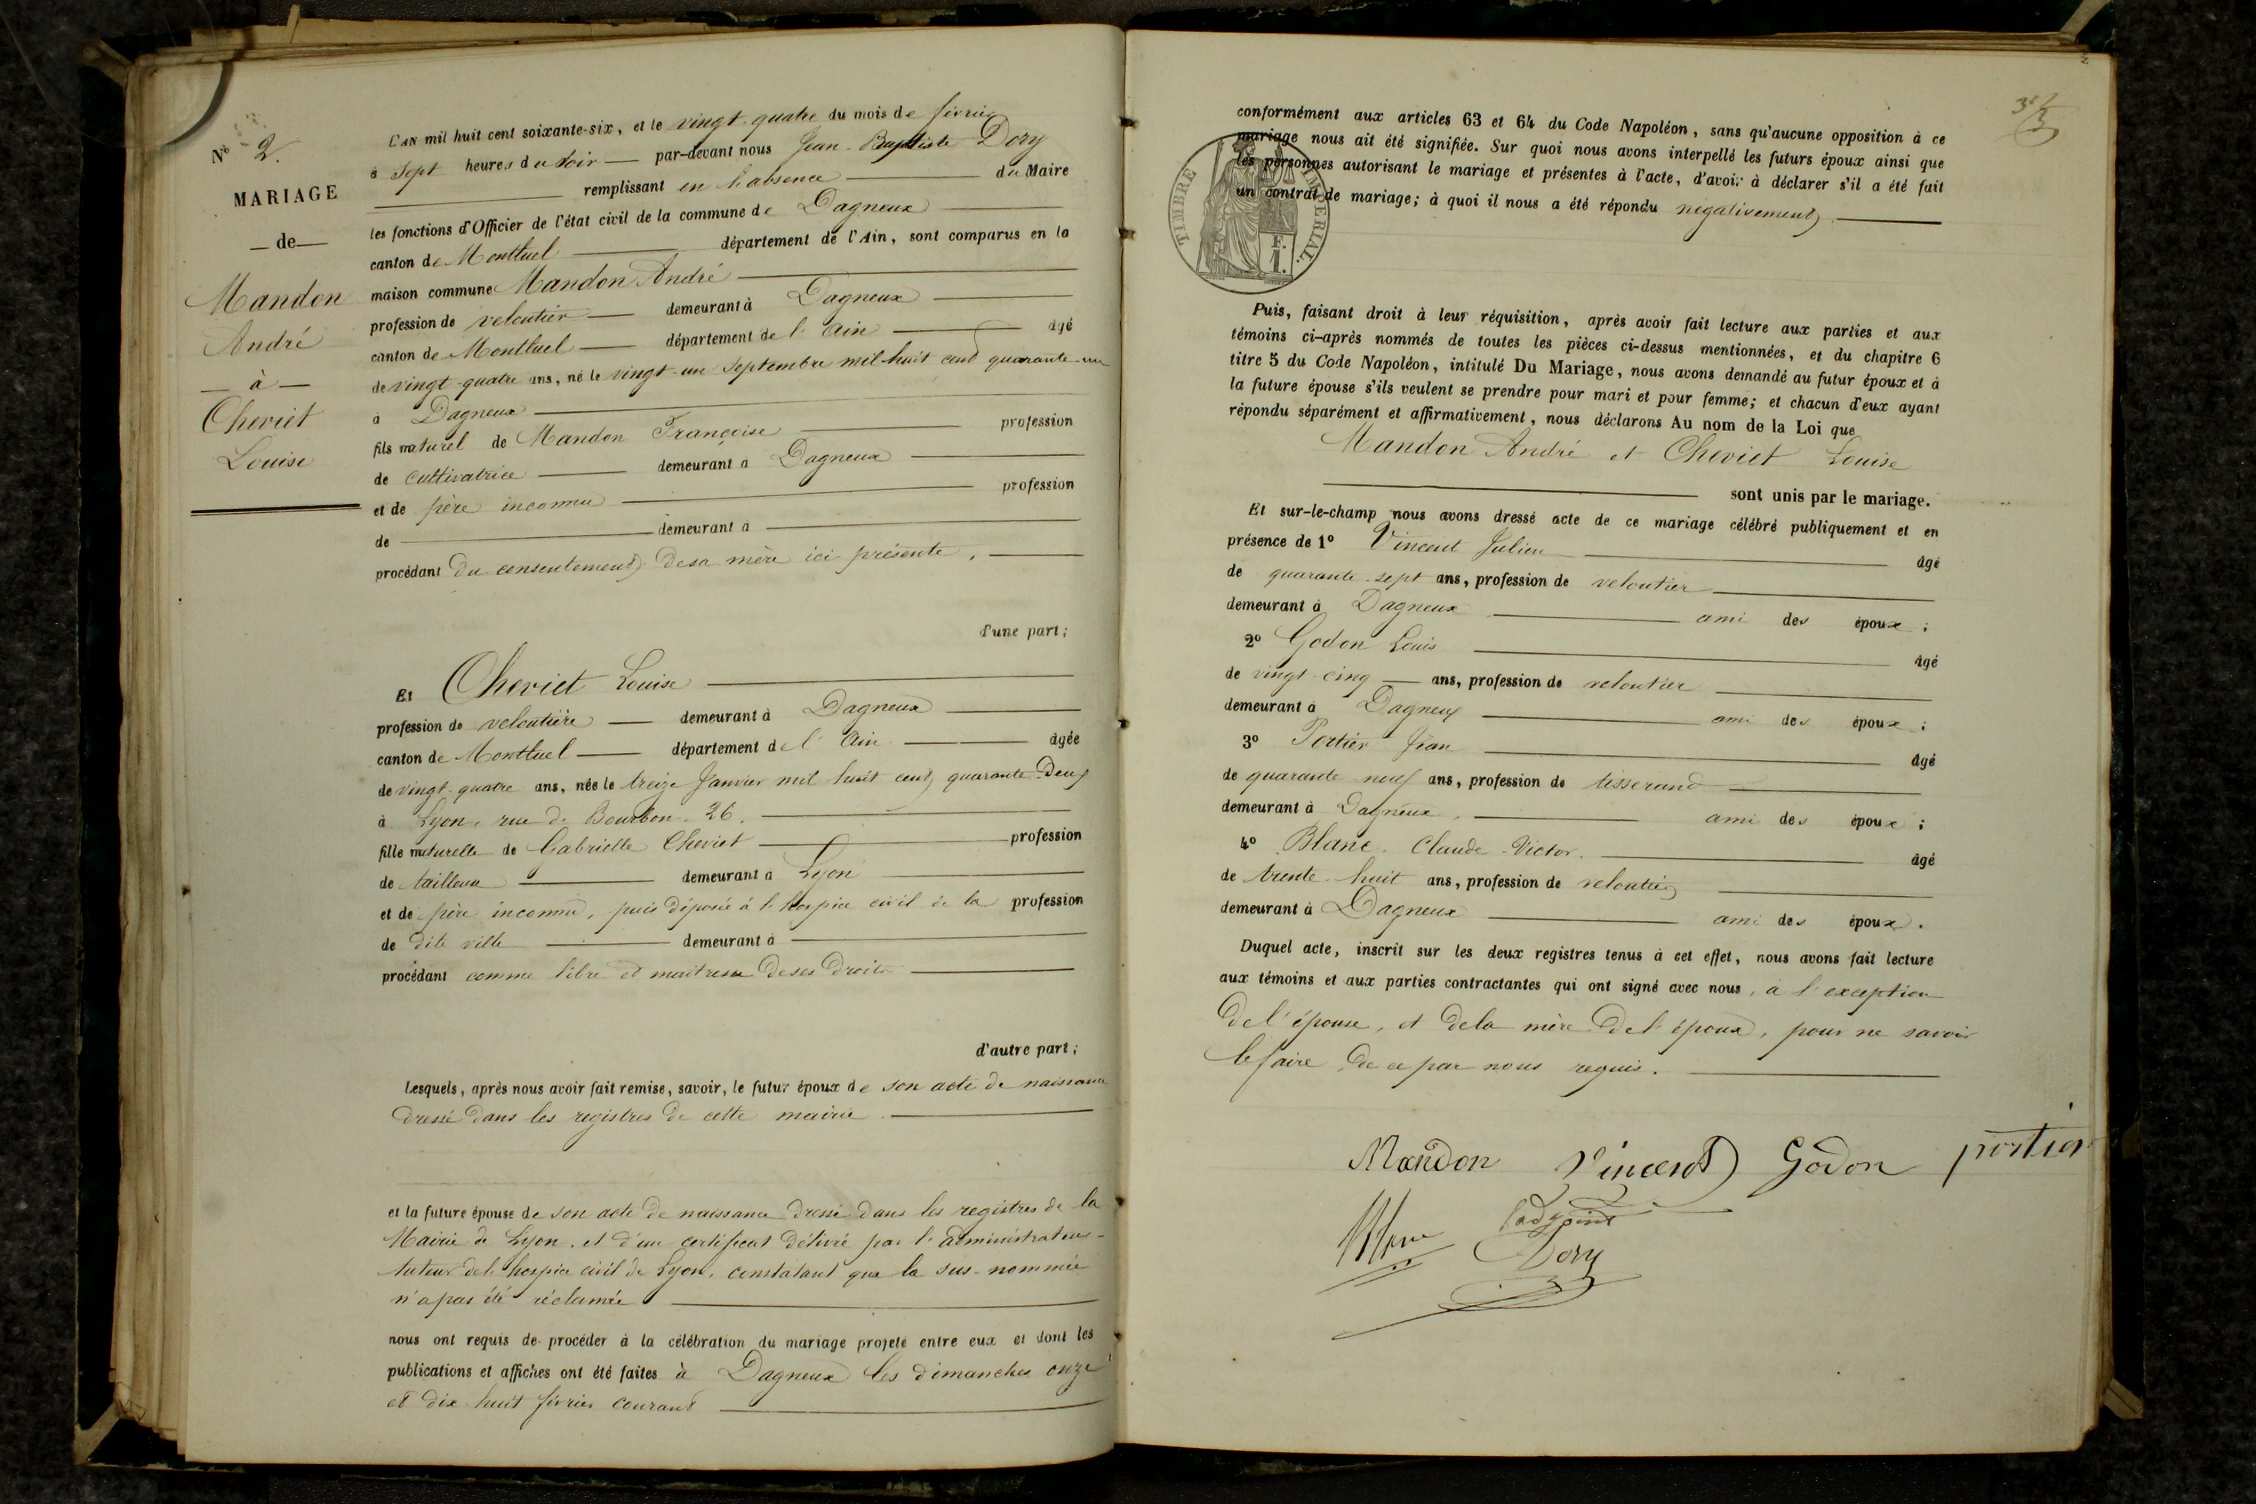 N° 2.
MARIAGE
de
Mandon
André
à
Cheviet
Louise
L'AN mil huit cent soixante-six, et le vingt-quatre du mois de février
à sept heures du soir par-devant nous Jean-Baptiste Dory
remplissant en l'absence du Maire
les fonctions d'Officier de l'état civil de la commune de Dagneux
canton de Montluel département de l'Ain, sont comparus en la
maison commune Mandon André
profession de veloutier demeurant à Dagneux
canton de Montluel département de l'Ain âgé
de vingt-quatre ans, né le vingt-un septembre mil huit cent quarante-un
à Dagneux
fils naturel de Mandon Françoise profession
de cultivatrice demeurant à Dagneux
et de père inconnu profession
de demeurant à
procédant du consentement de sa mère ici présente,
d'une part;
Et Cheviet Louise
profession de veloutière demeurant à Dagneux
canton de Montluel département de l'Ain âgée
de vingt-quatre ans, née le treize Janvier mil huit cent quarante-deux
à Lyon, rue de Bourbon, 26.
fille naturelle de Gabrielle Cheviet profession
de tailleur demeurant à Lyon
et de père inconnu, puis déposée à l'hospice civil de la profession
de dite ville demeurant à
procédant comme libre et maitresse de ses droits
d'autre part;
Lesquels, après nous avoir fait remise, savoir, le futur époux de son acte de naissance
dressé dans les registres de cette mairie.
et la future épouse de son acte de naissance dressé dans les registres de la
Mairie de Lyon, et d'un certificat délivré par l'administrateur-
tuteur de l'hospice civil de Lyon, constatant que la sus-nommée
n'a pas été réclamée
nous ont requis de procéder à la célébration du mariage projeté entre eux et dont les
publications et affiches ont été faites à Dagneux les dimanches onze
et dix-huit février courant
conformément aux articles 63 et 64 du Code Napoléon, sans qu'aucune opposition à ce
mariage nous ait été signifiée. Sur quoi nous avons interpellé les futurs époux ainsi que
les personnes autorisant le mariage et présentes à l'acte, d'avoir à déclarer s'il a été fait
un contrat de mariage; à quoi il nous a été répondu négativement.
TIMBRE IMPERIAL.
F.
1.
Puis, faisant droit à leur réquisition, après avoir fait lecture aux parties et aux
témoins ci-après nommés de toutes les pièces ci-dessus mentionnées, et du chapitre 6
titre 5 du Code Napoléon, intitulé Du Mariage, nous avons demandé au futur époux et à
la future épouse s'ils veulent se prendre pour mari et pour femme; et chacun d'eux ayant
répondu séparément et affirmativement, nous déclarons Au nom de la Loi que
Mandon André et Cheviet Louise
sont unis par le mariage.
Et sur-le-champ nous avons dressé acte de ce mariage célébré publiquement et en
présence de 1° Vincent Julien âgé
de quarante-sept ans, profession de veloutier
demeurant à Dagneux ami des époux;
2° Godon Louis âgé
de vingt-cinq ans, profession de veloutier
demeurant à Dagneux ami des époux;
3° Portier Jean âgé
de quarante-neuf ans, profession de tisserand
demeurant à Dagneux. ami des époux;
4° Blanc Claude-Victor. âgé
de trente-huit ans, profession de veloutier
demeurant à Dagneux ami des époux.
Duquel acte, inscrit sur les deux registres tenus à cet effet, nous avons fait lecture
aux témoins et aux parties contractantes qui ont signé avec nous, à l'exception
de l'épouse, et de la mère de l'époux, pour ne savoir
le faire de ce par nous requis.
Mandon Vincent Godon portier
l'adjoint
Dory